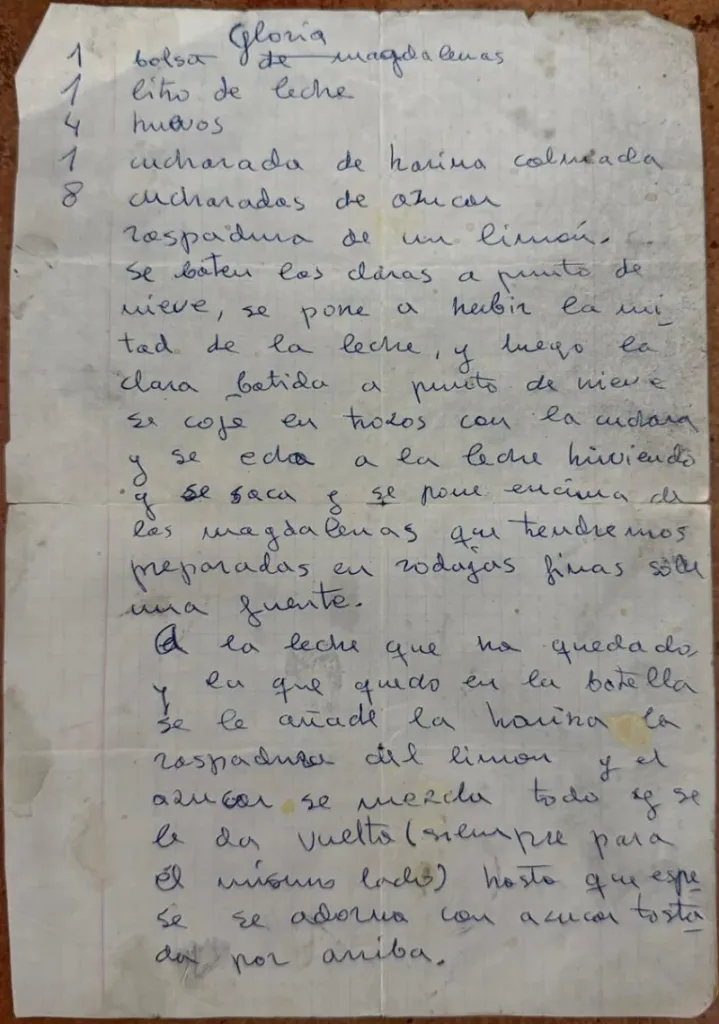 Gloria
1 bolsa de magdalenas
1 litro de leche
4 huevos
1 cucharada de harina colmada
8 cucharadas de azucar
raspadura de un limón.
se baten las claras a punto de
nieve, se pone a herbir la mi
tad de la leche, y luego la
clara batida a punto de nieve
se coje en trozos con la cuchara
y se echa a la leche hirviendo
y se saca y se pone encima de
las magdalenas que tendremos
preparadas en rodajas finas sobre
una fuente.
A la leche que ha quedado,
y la que quedo en la botella
se le añade la harina la
raspadura del limon y el
azucar se mezcla todo y se
le da vuelta (siempre para
el mismo lado) hasta que espe
se se adorna con azucar tosta
da por arriba.